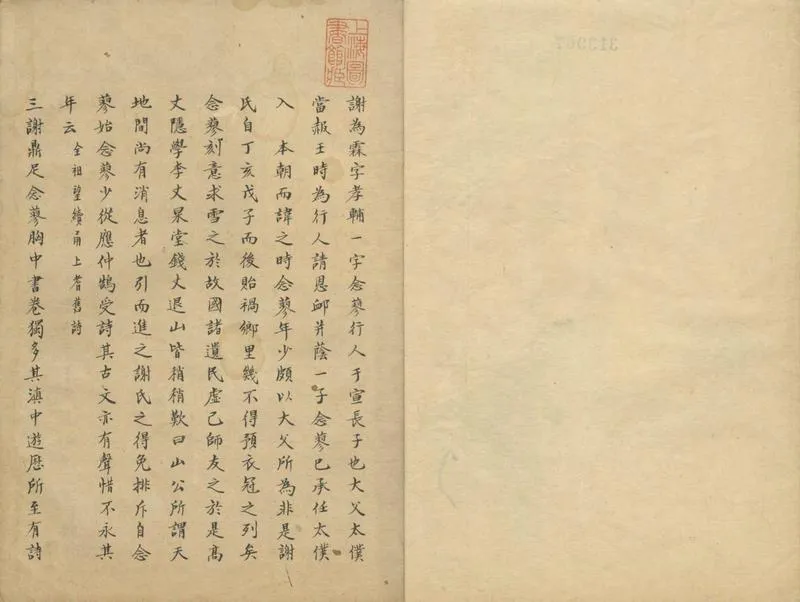 上海圖
書館藏
謝為霖字孝輔一字念蓼行人于宣長子也大父太僕
當赧王時為行人請恩卹并蔭一子念蓼已承任太僕
入　本朝而諱之時念蓼年少頗以大父所為非是謝
氏自丁亥戊子而後貽禍鄉里幾不得預衣冠之列矣
念蓼刻意求雪之於故國諸遺民虛己師友之於是高
丈隱學李丈杲堂錢丈退山皆稍稍歎曰山公所謂天
地間尚有消息者也引而進之謝氏之得免排斥自念
蓼始念蓼少從應仲鵠受詩其古文亦有聲惜不永其
年云　全祖望續甬上耆舊詩
三謝鼎足念蓼胸中書卷獨多其滇中遊歷所至有詩